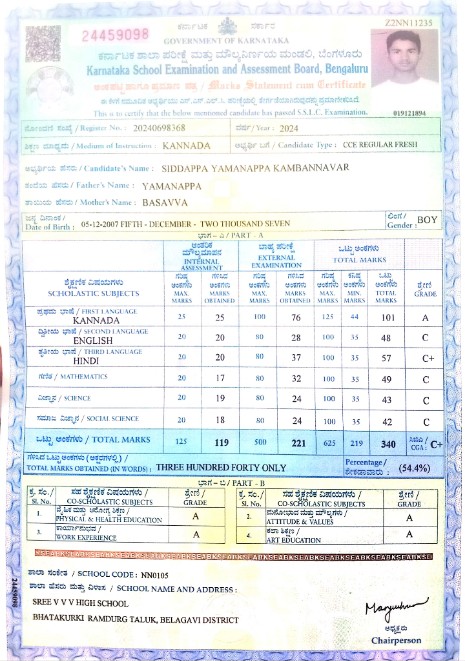 ಕರ್ನಾಟಕ ಸರ್ಕಾರ
Z2NN11235
24459098
GOVERNMENT OF KARNATAKA
ಕರ್ನಾಟಕ ಶಾಲಾ ಪರೀಕ್ಷೆ ಮತ್ತು ಮೌಲ್ಯನಿರ್ಣಯ ಮಂಡಲಿ, ಬೆಂಗಳೂರು
Karnataka School Examination and Assessment Board, Bengaluru
ಅಂಕಪಟ್ಟಿ ಹಾಗೂ ಪ್ರಮಾಣ ಪತ್ರ / Marks Statement cum Certificate
This is to certify that the below mentioned candidate has passed S.S.L.C. Examination.
019121894
ನೋಂದಣಿ ಸಂಖ್ಯೆ / Register No. : 20240698368 ವರ್ಷ/Year : 2024
ಶಿಕ್ಷಣ ಮಾಧ್ಯಮ / Medium of Instruction : KANNADA ಅಭ್ಯರ್ಥಿ ಬಗೆ / Candidate Type : CCE REGULAR FRESH
ಅಭ್ಯರ್ಥಿಯ ಹೆಸರು / Candidate's Name : SIDDAPPA YAMANAPPA KAMBANNAVAR
ತಂದೆಯ ಹೆಸರು / Father's Name : YAMANAPPA
ತಾಯಿಯ ಹೆಸರು / Mother's Name : BASAVVA
ಜನ್ಮ ದಿನಾಂಕ / Date of Birth : 05-12-2007 FIFTH - DECEMBER - TWO THOUSAND SEVEN ಲಿಂಗ / Gender : BOY
ಭಾಗ - ಎ / PART - A
ಶೈಕ್ಷಣಿಕ ವಿಷಯಗಳು SCHOLASTIC SUBJECTS
ಆಂತರಿಕ ಮೌಲ್ಯಮಾಪನ INTERNAL ASSESSMENT
ಬಾಹ್ಯ ಪರೀಕ್ಷೆ EXTERNAL EXAMINATION
ಒಟ್ಟು ಅಂಕಗಳು TOTAL MARKS
ಶ್ರೇಣಿ GRADE
ಗರಿಷ್ಠ ಅಂಕಗಳು MAX. MARKS
ಗಳಿಸಿದ ಅಂಕಗಳು MARKS OBTAINED
ಗರಿಷ್ಠ ಅಂಕಗಳು MAX. MARKS
ಗಳಿಸಿದ ಅಂಕಗಳು MARKS OBTAINED
ಗರಿಷ್ಠ ಅಂಕಗಳು MAX. MARKS
ಕನಿಷ್ಠ ಅಂಕಗಳು MIN. MARKS
ಒಟ್ಟು ಅಂಕಗಳು TOTAL MARKS
ಪ್ರಥಮ ಭಾಷೆ / FIRST LANGUAGE
KANNADA 25 25 100 76 125 44 101 A
ದ್ವಿತೀಯ ಭಾಷೆ / SECOND LANGUAGE
ENGLISH 20 20 80 28 100 35 48 C
ತೃತೀಯ ಭಾಷೆ / THIRD LANGUAGE
HINDI 20 20 80 37 100 35 57 C+
ಗಣಿತ / MATHEMATICS 20 17 80 32 100 35 49 C
ವಿಜ್ಞಾನ / SCIENCE 20 19 80 24 100 35 43 C
ಸಮಾಜ ವಿಜ್ಞಾನ / SOCIAL SCIENCE 20 18 80 24 100 35 42 C
ಒಟ್ಟು ಅಂಕಗಳು / TOTAL MARKS 125 119 500 221 625 219 340 CGA : C+
ಗಳಿಸಿದ ಒಟ್ಟು ಅಂಕಗಳು (ಅಕ್ಷರಗಳಲ್ಲಿ) /
TOTAL MARKS OBTAINED (IN WORDS) : THREE HUNDRED FORTY ONLY Percentage / ಶೇಕಡಾವಾರು : (54.4%)
ಭಾಗ - ಬಿ / PART - B
ಕ್ರ. ಸಂ./ Sl. No. ಸಹ ಶೈಕ್ಷಣಿಕ ವಿಷಯಗಳು / CO-SCHOLASTIC SUBJECTS ಶ್ರೇಣಿ / GRADE
ಕ್ರ. ಸಂ./ Sl. No. ಸಹ ಶೈಕ್ಷಣಿಕ ವಿಷಯಗಳು / CO-SCHOLASTIC SUBJECTS ಶ್ರೇಣಿ / GRADE
1. ದೈಹಿಕ ಮತ್ತು ಆರೋಗ್ಯ ಶಿಕ್ಷಣ / PHYSICAL & HEALTH EDUCATION A
2. ಮನೋಭಾವ ಮತ್ತು ಮೌಲ್ಯಗಳು / ATTITUDE & VALUES A
3. ಕಾರ್ಯಾನುಭವ / WORK EXPERIENCE A
4. ಕಲಾ ಶಿಕ್ಷಣ / ART EDUCATION A
ಶಾಲಾ ಸಂಕೇತ / SCHOOL CODE : NN0105
ಶಾಲಾ ಹೆಸರು ಮತ್ತು ವಿಳಾಸ / SCHOOL NAME AND ADDRESS :
SREE V V V HIGH SCHOOL
BHATAKURKI RAMDURG TALUK, BELAGAVI DISTRICT
ಅಧ್ಯಕ್ಷರು
Chairperson
24459098